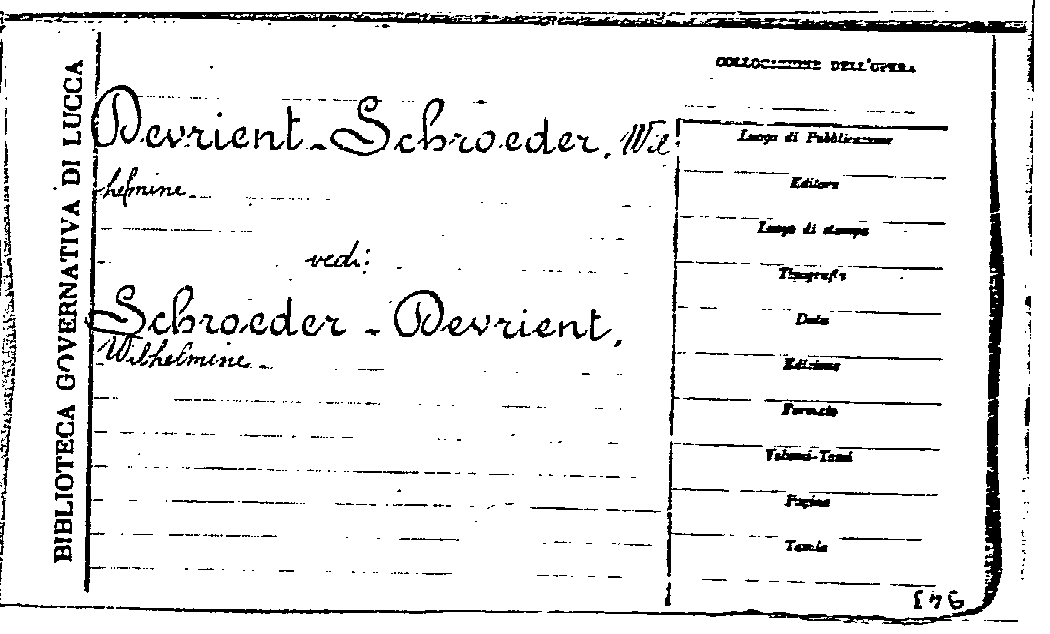 BIBLIOTECA GOVERNATIVA DI LUCCA
Devrient-Schroeder, Wil-
helmine
vedi:
Schroeder-Devrient,
Wilhelmine
COLLOCAZIONE DELL'OPERA
Luogo di Pubblicazione
Editore
Luogo di stampa
Tipografia
Data
Edizione
Formato
Volumi-Tomi
Pagine
Tavole